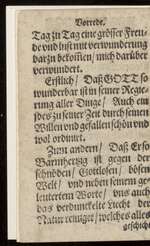 Vorrede.
Tag zu Tag eine grösser Freu-
de und lust mit verwunderung
darzn bekomen / mich darüber
verwundert.
Erstlich / Daß GOTT so
wunderbar ist in seiner Regie-
rung aller Dinge / Auch ein
jdes zu seiner Zeit durch seinen
Willen und gefallen schön und
wol ordnuet.
Zum andern / Daß Er so
Barmhertzig ist gegen der
schnöden / Gottlosen / bösen
Welt / und neben seinem ge-
leutertem Worte / uns auch
das verdunckelte Liecht der
Natur reiniget / welches alles
geschicht